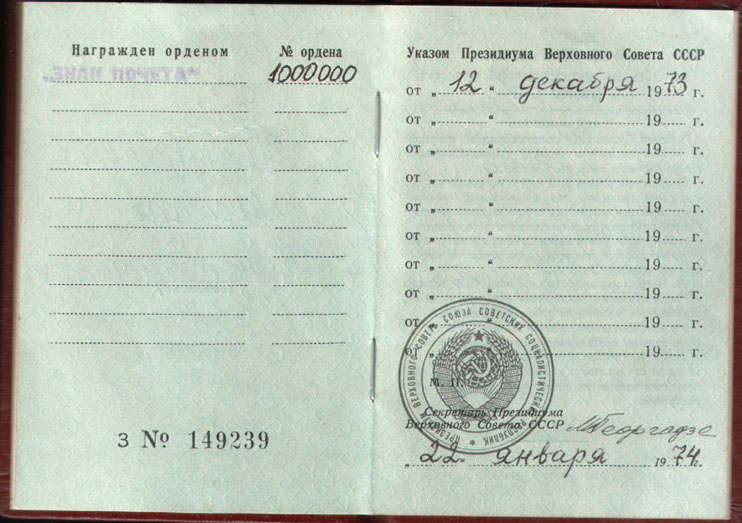 Награжден орденом № ордена
1000000
З № 149239
Указом Президиума Верховного Совета СССР
от „ 12 “ декабря 1973 г.
от „ “ 19 г.
от „ “ 19 г.
от „ “ 19 г.
от „ “ 19 г.
от „ “ 19 г.
от „ “ 19 г.
от „ “ 19 г.
от „ “ 19 г.
от „ “ 19 г.
ПРЕЗИДИУМ ВЕРХОВНОГО СОВЕТА СОЮЗА СОВЕТСКИХ СОЦИАЛИСТИЧЕСКИХ РЕСПУБЛИК
М. П.
Секретарь Президиума
Верховного Совета СССР МГеоргадзе
„ 22 “ января 1974 г.